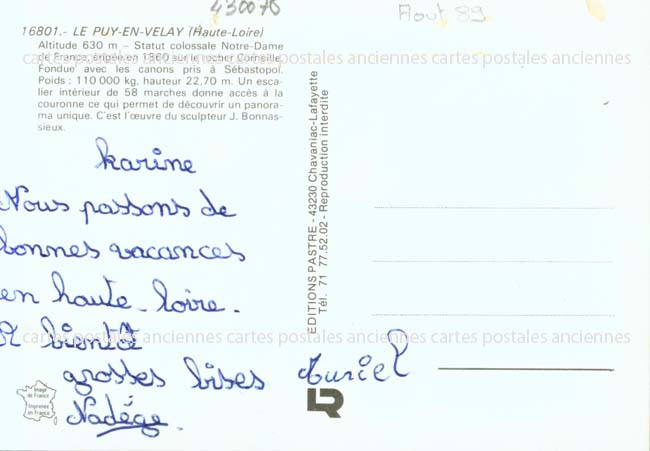 430076
Aout 89
16801.- LE PUY-EN-VELAY (Haute-Loire)
Altitude 630 m – Statut colossale Notre-Dame
de France, érigée en 1860 sur le rocher Corneille.
Fondue avec les canons pris à Sébastopol.
Poids : 110 000 kg, hauteur 22,70 m. Un esca-
lier intérieur de 58 marches donne accès à la
couronne ce qui permet de découvrir un panora-
ma unique. C'est l'œuvre du sculpteur J. Bonnas-
sieux.
cartes postales anciennes cartes postales anciennes cartes postales anciennes
karine
Nous passons de
bonnes vacances
en haute-loire.
A bientôt
grosses bises Muriel
Nadège.
cartes postales anciennes cartes postales anciennes cartes postales anciennes
EDITIONS PASTRE - 43230 Chavaniac-Lafayette
Tél. 71 77.52.02 - Reproduction interdite
Image
de France
Imprimée
en France
LR